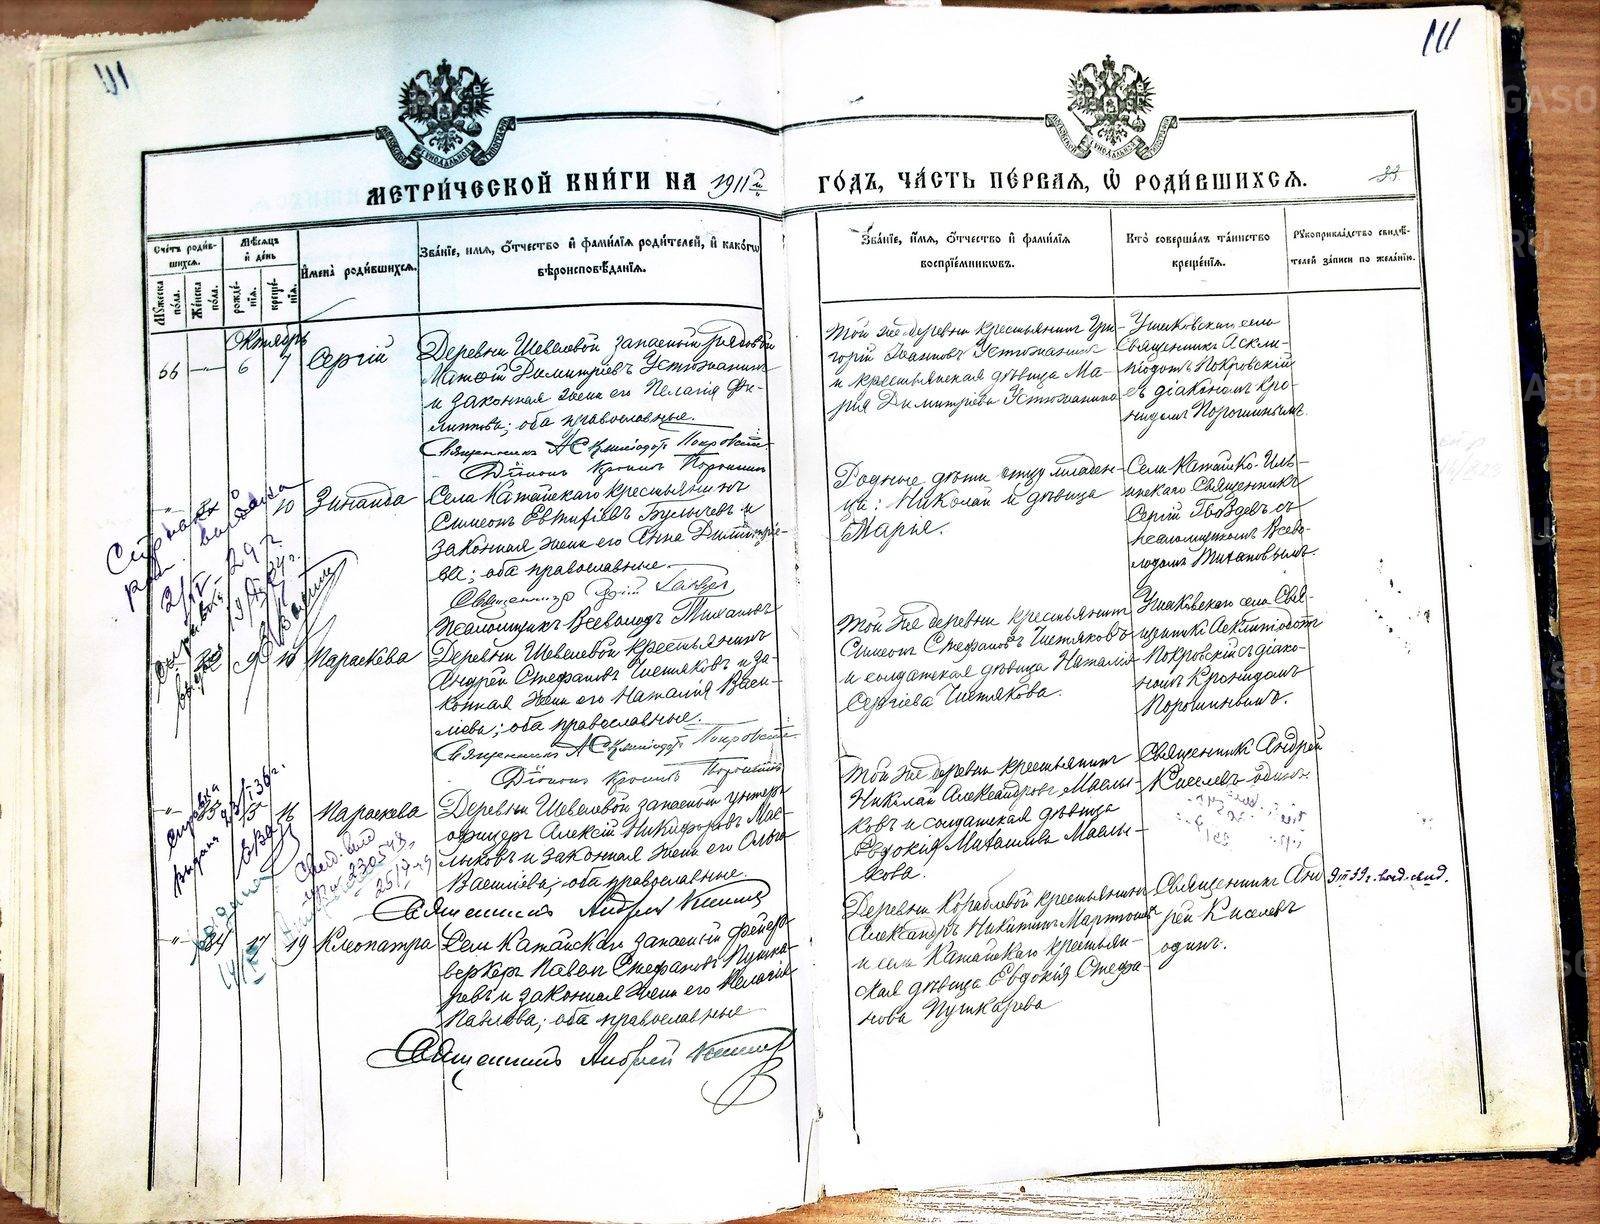 111
111
МЕТРИ́ЧЕСКОЙ КНИ́ГИ НА 1911й
ГО́ДЪ, ЧА́СТЬ ПЕ́РВАЯ, Ѡ РОДИ́ВШИХСЯ.
Сче́тъ роди́в-
шихся.
Мѣ́сяцъ
и де́нь
Му́жеска по́ла.
Же́нска по́ла.
рожде́-
нія.
креще́-
нія.
Имена̀ роди́вшихся.
Зва́ніе, имя, о́тчество и фами́лія роди́телей, и како́гѡ
вѣроисповѣ́данія.
Зва́ніе, и́мя, о́тчество и фами́лія
воспріе́мниковъ.
Кто̀ соверша́лъ та́инство
креще́нія.
Рукоприкла́дство свидѣ́-
телей за́писи по жела́нію.
Октябрь
66 — 6 7 Сергій
Деревни Шевелевой запасный рядовой
Матѳій Димитріевъ Устюжанинъ
и законная жена его Пелагія Фи-
липпова; оба православные.
Священникъ Асклипіодотъ Покровскій
Діаконъ Кронидъ Порошинъ
Той же деревни крестьянинъ Гри-
горій Іоанновъ Устюжанинъ
и крестьянская дѣвица Ма-
рія Димитріева Устюжанина
Ушаковскаго села
Священникъ Аскли-
піодотъ Покровскій
съ діакономъ Кро-
нидомъ Порошинымъ.
10 Зинаида
Села Катайскаго крестьянинъ
Симеонъ Евтихіевъ Булычевъ и
законная жена его Анна Димитріе-
ва; оба православные.
Священникъ Сергій Гвоздевъ
Псаломщикъ Всеволодъ Титановъ
Родные дѣти отцу младен-
ца: Николай и дѣвица
Марья.
Села Катайско-Иль-
инскаго Священникъ
Сергій Гвоздевъ съ
псаломщикомъ Всево-
лодомъ Титановымъ.
9 10 Параскева
Деревни Шевелевой крестьянинъ
Андрей Стефановъ Чистяковъ и за-
конная жена его Наталія Васи-
ліева; оба православные.
Священникъ Асклипіодотъ Покровскій
Діаконъ Кронидъ Порошинъ
Той же деревни крестьянинъ
Симеонъ Стефановъ Чистяковъ
и солдатская дѣвица Наталія
Сергіева Чистякова.
Ушаковскаго села Свя-
щенникъ Асклипіодотъ
Покровскій съ діако-
номъ Кронидомъ
Порошинымъ.
15 16 Параскева
Деревни Шевелевой запасный унтеръ-
офицеръ Алексій Никифоровъ Мас-
лыковъ и законная жена его Ольга
Васильева; оба православные.
Священникъ Андрей Киселевъ
Той же деревни крестьянинъ
Николай Александровъ Маслы-
ковъ и солдатская дѣвица
Евдокія Михаилова Маслы-
кова.
Священникъ Андрей
Киселевъ одинъ.
84 17 19 Клеопатра
Села Катайскаго запасный фейер-
веркеръ Павелъ Стефановъ Пушка-
ревъ и законная жена его Пелагія
Павлова; оба православные
Священникъ Андрей Киселевъ
Деревни Кораблевой крестьянинъ
Александръ Никитинъ Мартюшевъ
и села Катайскаго крестьян-
ская дѣвица Евдокія Стефа-
нова Пушкарева
Священникъ Анд
рей Киселевъ
одинъ.
Справка
выдана
29 г.
Справка
выдана 23/I 36 г.
GASO